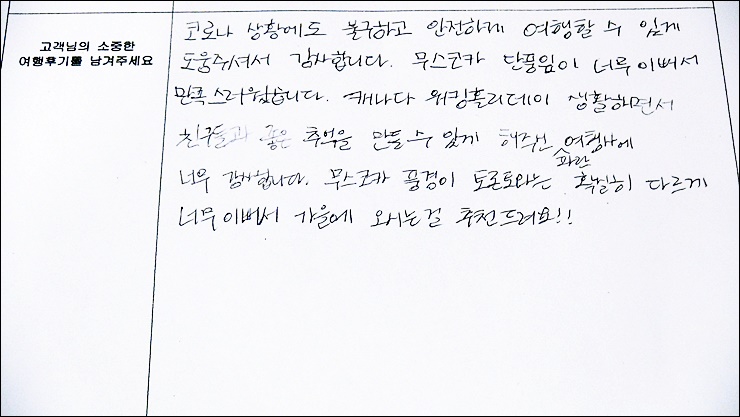 고객님의 소중한
여행후기를 남겨주세요
코로나 상황에도 불구하고 안전하게 여행할 수 있게
도움주셔서 감사합니다. 무스코카 단풍잎이 너무 이뻐서
만족스러웠습니다. 캐나다 워킹홀리데이 생활하면서
친구들과 좋은 추억을 만들 수 있게 해주신 여행사에
파란
너무 감사합니다. 무스코카 풍경이 토론토와는 확실히 다르게
너무 이뻐서 가을에 오시는걸 추천드려요!!